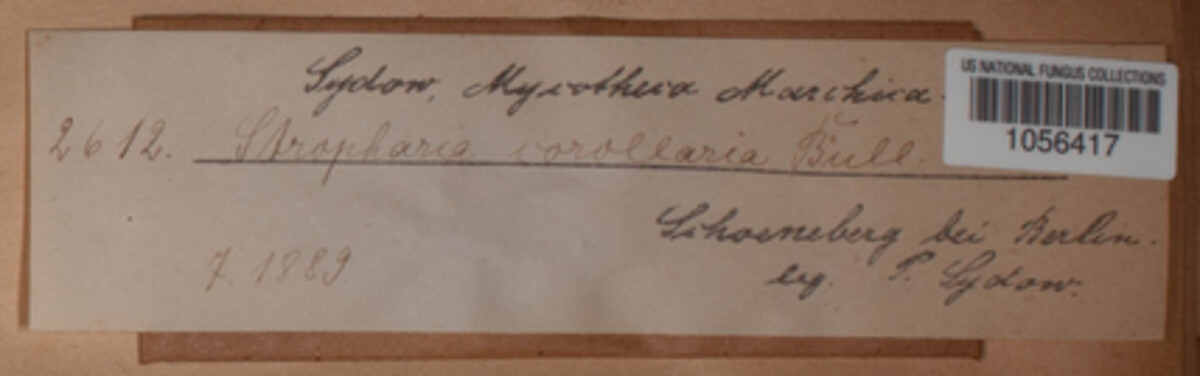 Sydow, Mycotheca Marchica.
US NATIONAL FUNGUS COLLECTIONS
1056417
2612. Stropharia corollaria Bull.
Schoeneberg bei Berlin.
7. 1889
leg. P. Sydow.